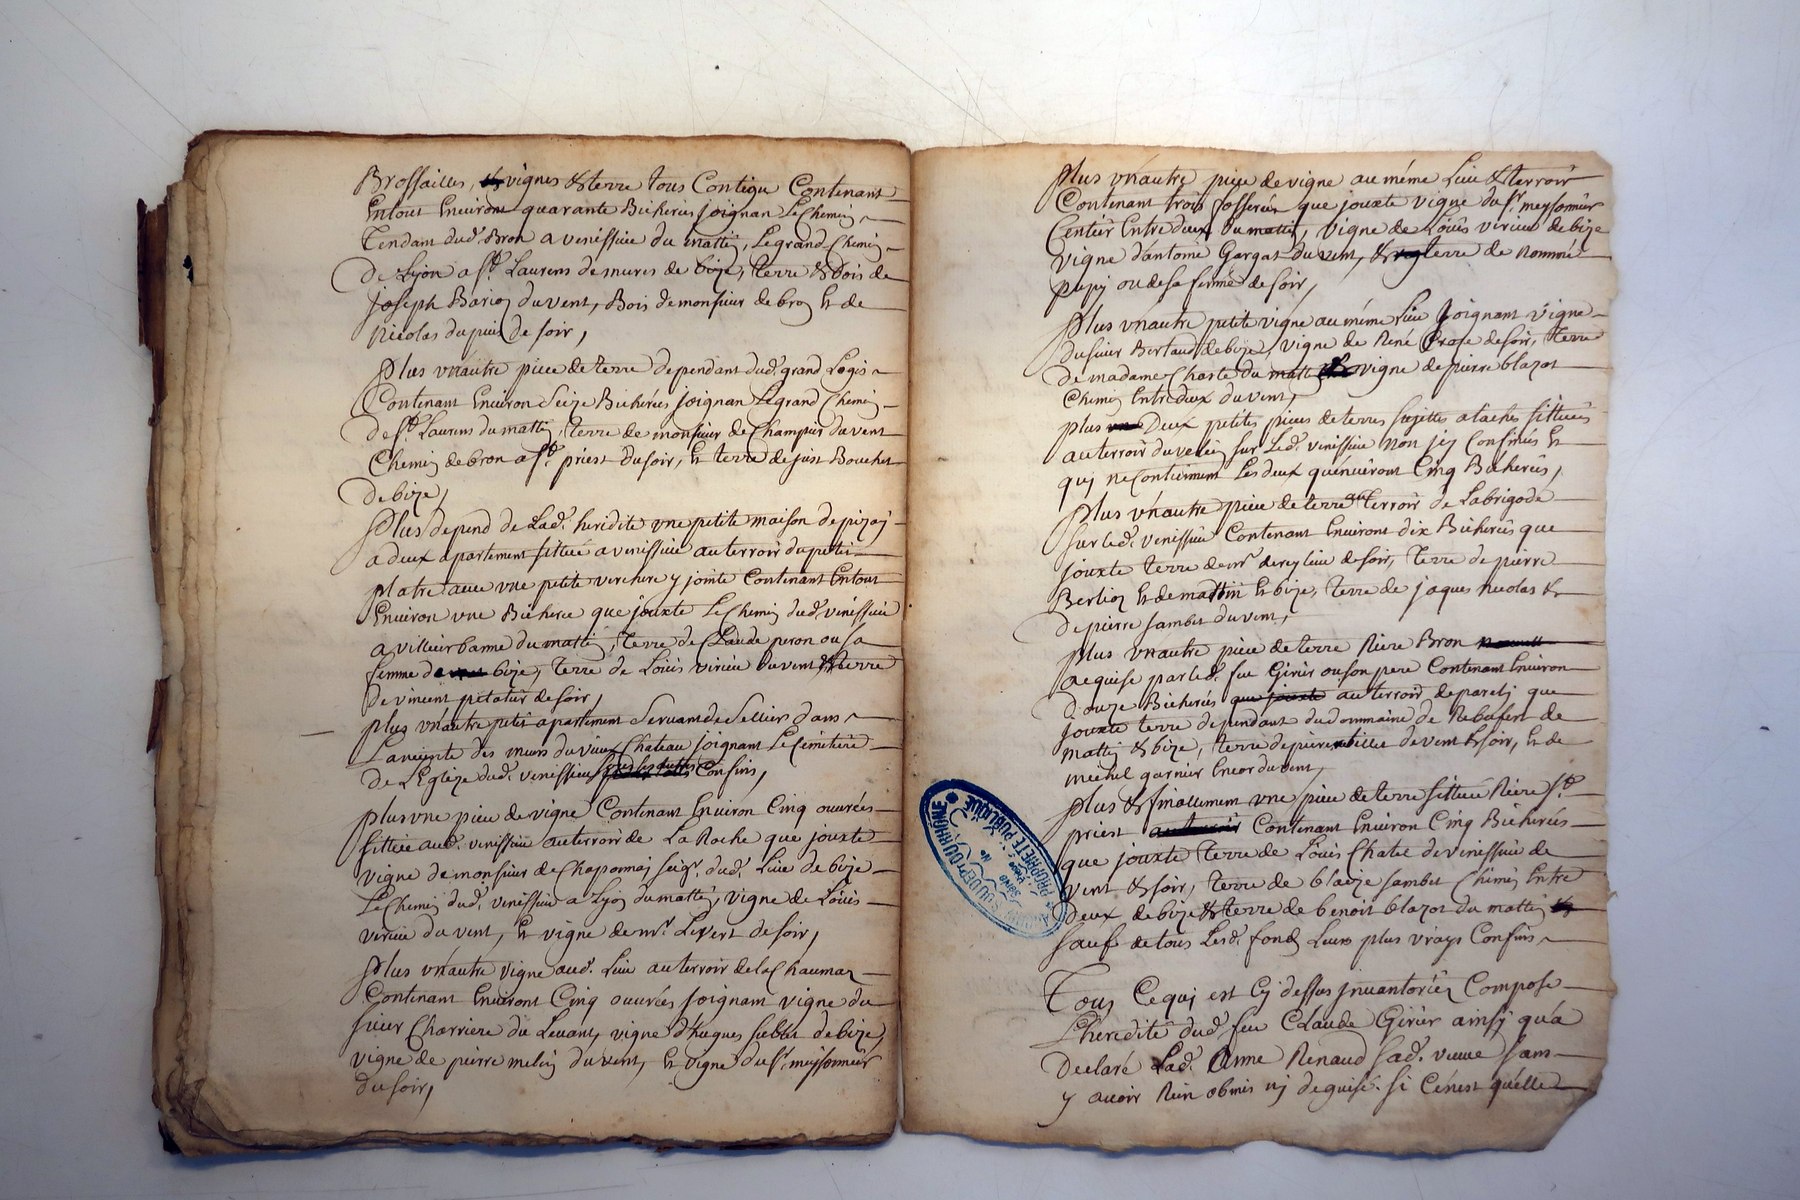 Brossailles, vignes & terre tous Contigu Contenant
Entout Environ quarante Bicherées joignan Le Chemin
Tendam dud. Bron a venissieu du mattin, Le grand Chemin
de Lyon a St. Laurens de mures de bize, terre & Bois de
joseph Barioz du vent, Bois de monsieur de bron Et de
Nicolas dupuis de soir,
Plus un'autre piece de terre dependant dud. grand Logis
Contenant Environ Seize Bicherées joignan Le grand Chemin
de St. Laurens du mattin, terre de monsieur de Champier du vent
Chemin de bron a St. priest du soir, Et terre de just Bouchet
De bize,
Plus depend de Lad. heridité une petite maison de pizay
a deux apartement scittué a venissieu au terroir du petit
platre avec une petite verchere y jointe Contenant Entout
Environ une Bicherée que jouxte Le Chemin dud. venissieu
a villeurbanne du mattin, terre de Claude peron ou sa
femme de bize, terre de Loüis virieu du vent & terre
De vincent pitatur de soir,
plus un'autre petit apartement Servant de Sellier dans
L'anceinte des murs du vieux Chateau joignant Le Cemitiere
de L'Eglize dud. venissieu Confins,
plus une piece de vigne Contenant Environ Cinq ouvrées
sittuée aud. venissieu au terroir de La Roche que jouxte
vigne de monsieur de Chaponnay seigr. dud. Lieu de bize
Le Chemin dud. venissieu a Lyon du mattin, vigne de Loüis
virieu du vent, Et vigne de mr. Levert de soir,
plus un'autre vigne aud. Lieu au terroir de la Chaumaz
Contenant Environt Cinq ouvrées joignant vigne du
sieur Charriere du Levant, vigne d'hugues sublet de bize,
vigne de pierre melin du vent, Et vigne du Sr. meyssonnier
du soir,
Plus un'autre piece de vigne au même Lieu & terroir
Contenant trois fosserées que jouxte vigne du Sr. meyssonnier
Centier Entredeux du mattin, vigne de Loüis virieu de bize
vigne d'antoine Gargat du vent, & terre de nommé
pupy ou de sa femme de soir,
Plus un'autre petite vigne au même Lieu joignant vigne
du sieur Bertaud de bize, vigne de René Crose de soir, terre
de madame Charte du matt vigne de pierre blazot
Chemin Entredeux du vent,
plus Deux petites pieces de terres sujettes a taches sittuées
au terroir du velin sur Led. venissieu non jcy Confinés Et
quy ne Contiennent Les deux qu'environt Cinq Bicherées,
Plus un'autre piece de terre au terroir de Labrigode
sur led. venissieu Contenant Environt dix Bicherées que
jouxte terre de mr. dereyleiu de soir, terre de pierre
Berlioz Et de mattin Et bize, terre de jaques nicolas &
de pierre jambet du vent,
plus un'autre piece de terre Riere Bron
acquise par led. feu Girier ou son pere Contenant Environ
douze Bicherées que jouxte au terroir de parelj que
jouxte terre dependant du dommaine de Rebufert de
mattin & bize, terre de pierre billet de vent & soir, Et de
michel garnier Encor du vent,
plus & finallement une piece de terre sittuée Riere St.
priest Contenant Environ Cinq Bicherées
que jouxte terre de Loüis Chatel de venissieu de
vent & soir, terre de blaize jambet Chemin Entre
deux de bize & terre de benoit blazot du mattin
sauf de tous Lesd. fonds Leurs plus vrays Confins
Tous Cequi est Cy dessus jnvantorié Compose
L'heredité dud. feu Claude Girier ainsy qu'a
Declaré Lad. Anne Renaud sad. veuve sans
y avoir Rien obmis ny deguisé. si Cenest qu'elle
PROPRIETE PUBLIQUE